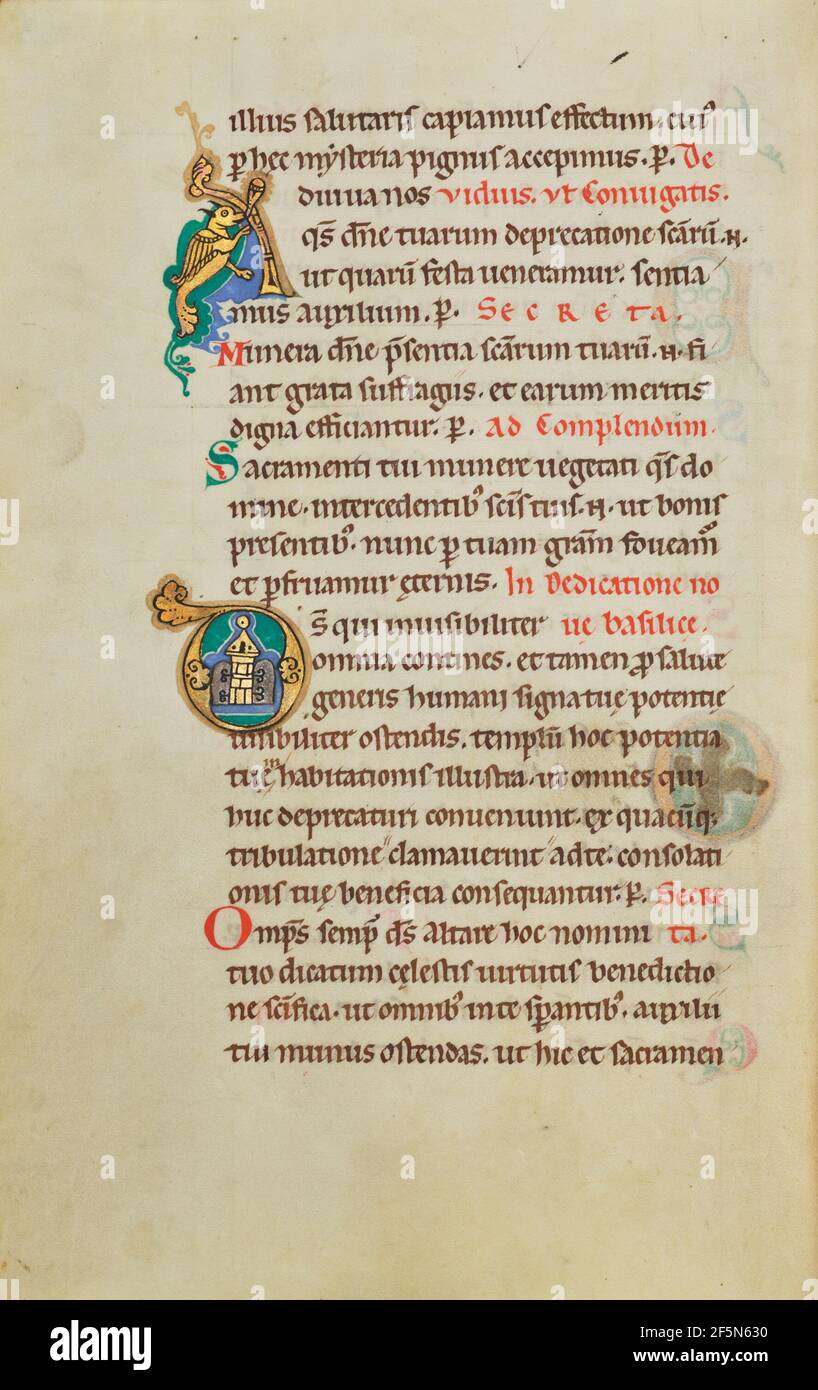 illius salutaris capiamus effectum. cui᾽
ꝑ hec mysteria pignus accepimus. P. De
Adiuua nos viduis. vt Coniugatis.
qs̄ dn̄e tuarum deprecatione sc̄arū .N.
ut quarū festa ueneramur. sentia
mus auxilium. P. Secreta.
Munera dn̄e p̄sentia sc̄arum tuarū .N. fi
ant grata suffragiis. et earum meritis
digna efficiantur. P. Ad Complendum.
Sacramenti tui munere uegetati qs̄ do
mine. intercedentib᾽ sc̄is tuis .N. ut bonis
presentib᾽. nunc ꝑ tuam gr̄am foueam᾽
et ꝑfruamur ęternis. In Dedicatione no
Ds̄ qui inuisibiliter ue basilice.
omnia contines. et tamen ꝓ salute
generis humani signa tuę potentię
uisibiliter ostendis. templū hoc potentia
tuę inhabitationis illustra. ut omnes qui
huc deprecaturi conueniunt. ex quacūq;
tribulatione clamauerint ad te; consolati
onis tuę beneficia consequantur. P. Secre
Omps̄ semp̄ ds̄ altare hoc nomini ta.
tuo dicatum cęlestis uirtutis benedictio
ne sc̄ifica. ut omnib᾽ in te sꝑantib᾽. auxilii
tui munus ostendas. ut hic et sacramen
a
alamy
Image ID: 2F5N630
www.alamy.com